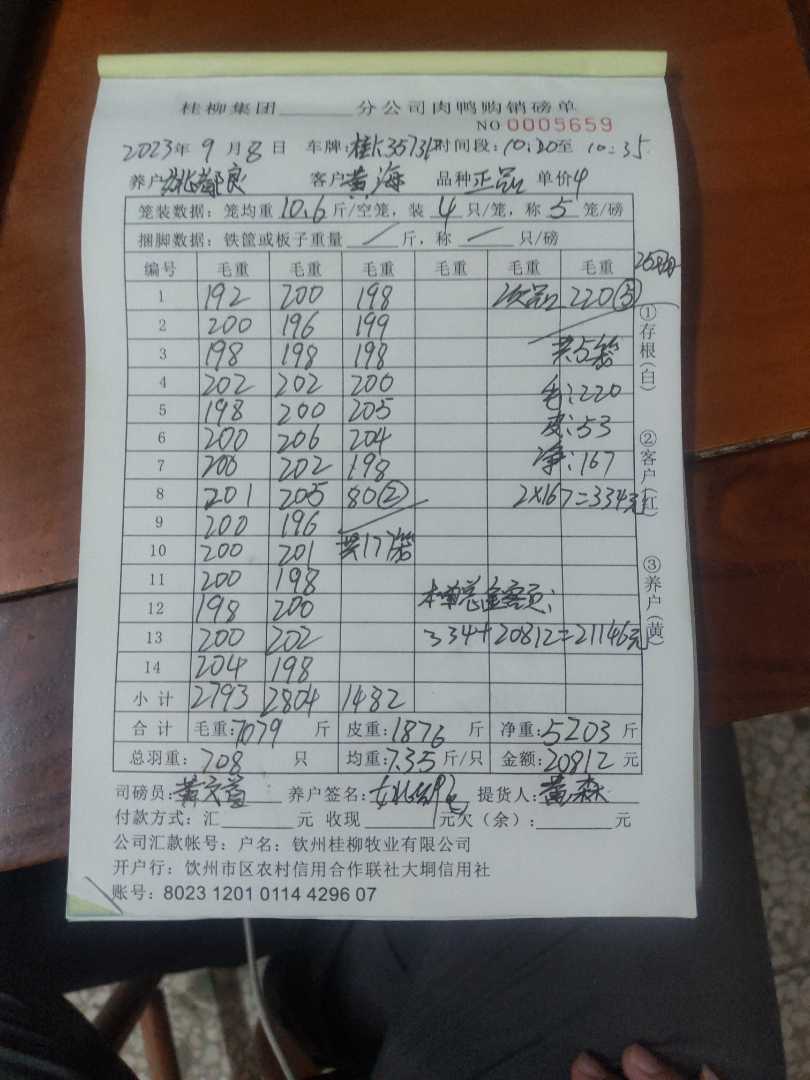 桂柳集团 分公司肉鸭购销磅单
NO 0005659
2023年 9 月 8 日 车牌: 时间段: 10:20至 10:35
养户 客户 黄海 品种 正品 单价 4
笼装数据: 笼均重 10.6 斤/空笼, 装 4 只/笼, 称 5 笼/磅
捆脚数据: 铁筐或板子重量 / 斤, 称 / 只/磅
编号 毛重 毛重 毛重 毛重 毛重 毛重
1 192 200 198 次品 220⑤
2 200 196 199
3 198 198 198 共5笼
4 202 202 200 毛:220
5 198 200 205 皮:53
6 200 206 204 净:167
7 200 202 198
8 201 205 80② 2×167=334元
9 200 196
10 200 201 共177笼
11 200 198
12 198 200 本单总金额:
13 200 202 334+20812=21146元
14 204 198
小计 2793 2804 1482
合计 毛重:7079 斤 皮重:1876 斤 净重:5203 斤
总羽重: 708 只 均重:7.35 斤/只 金额:20812 元
司磅员: 养户签名: 提货人: 黄森
付款方式: 汇 元 收现 元欠(余): 元
公司汇款帐号: 户名: 钦州桂柳牧业有限公司
开户行: 钦州市区农村信用合作联社大垌信用社
账号: 8023 1201 0114 4296 07
①存根(白)
②客户(红)
③养户(黄)